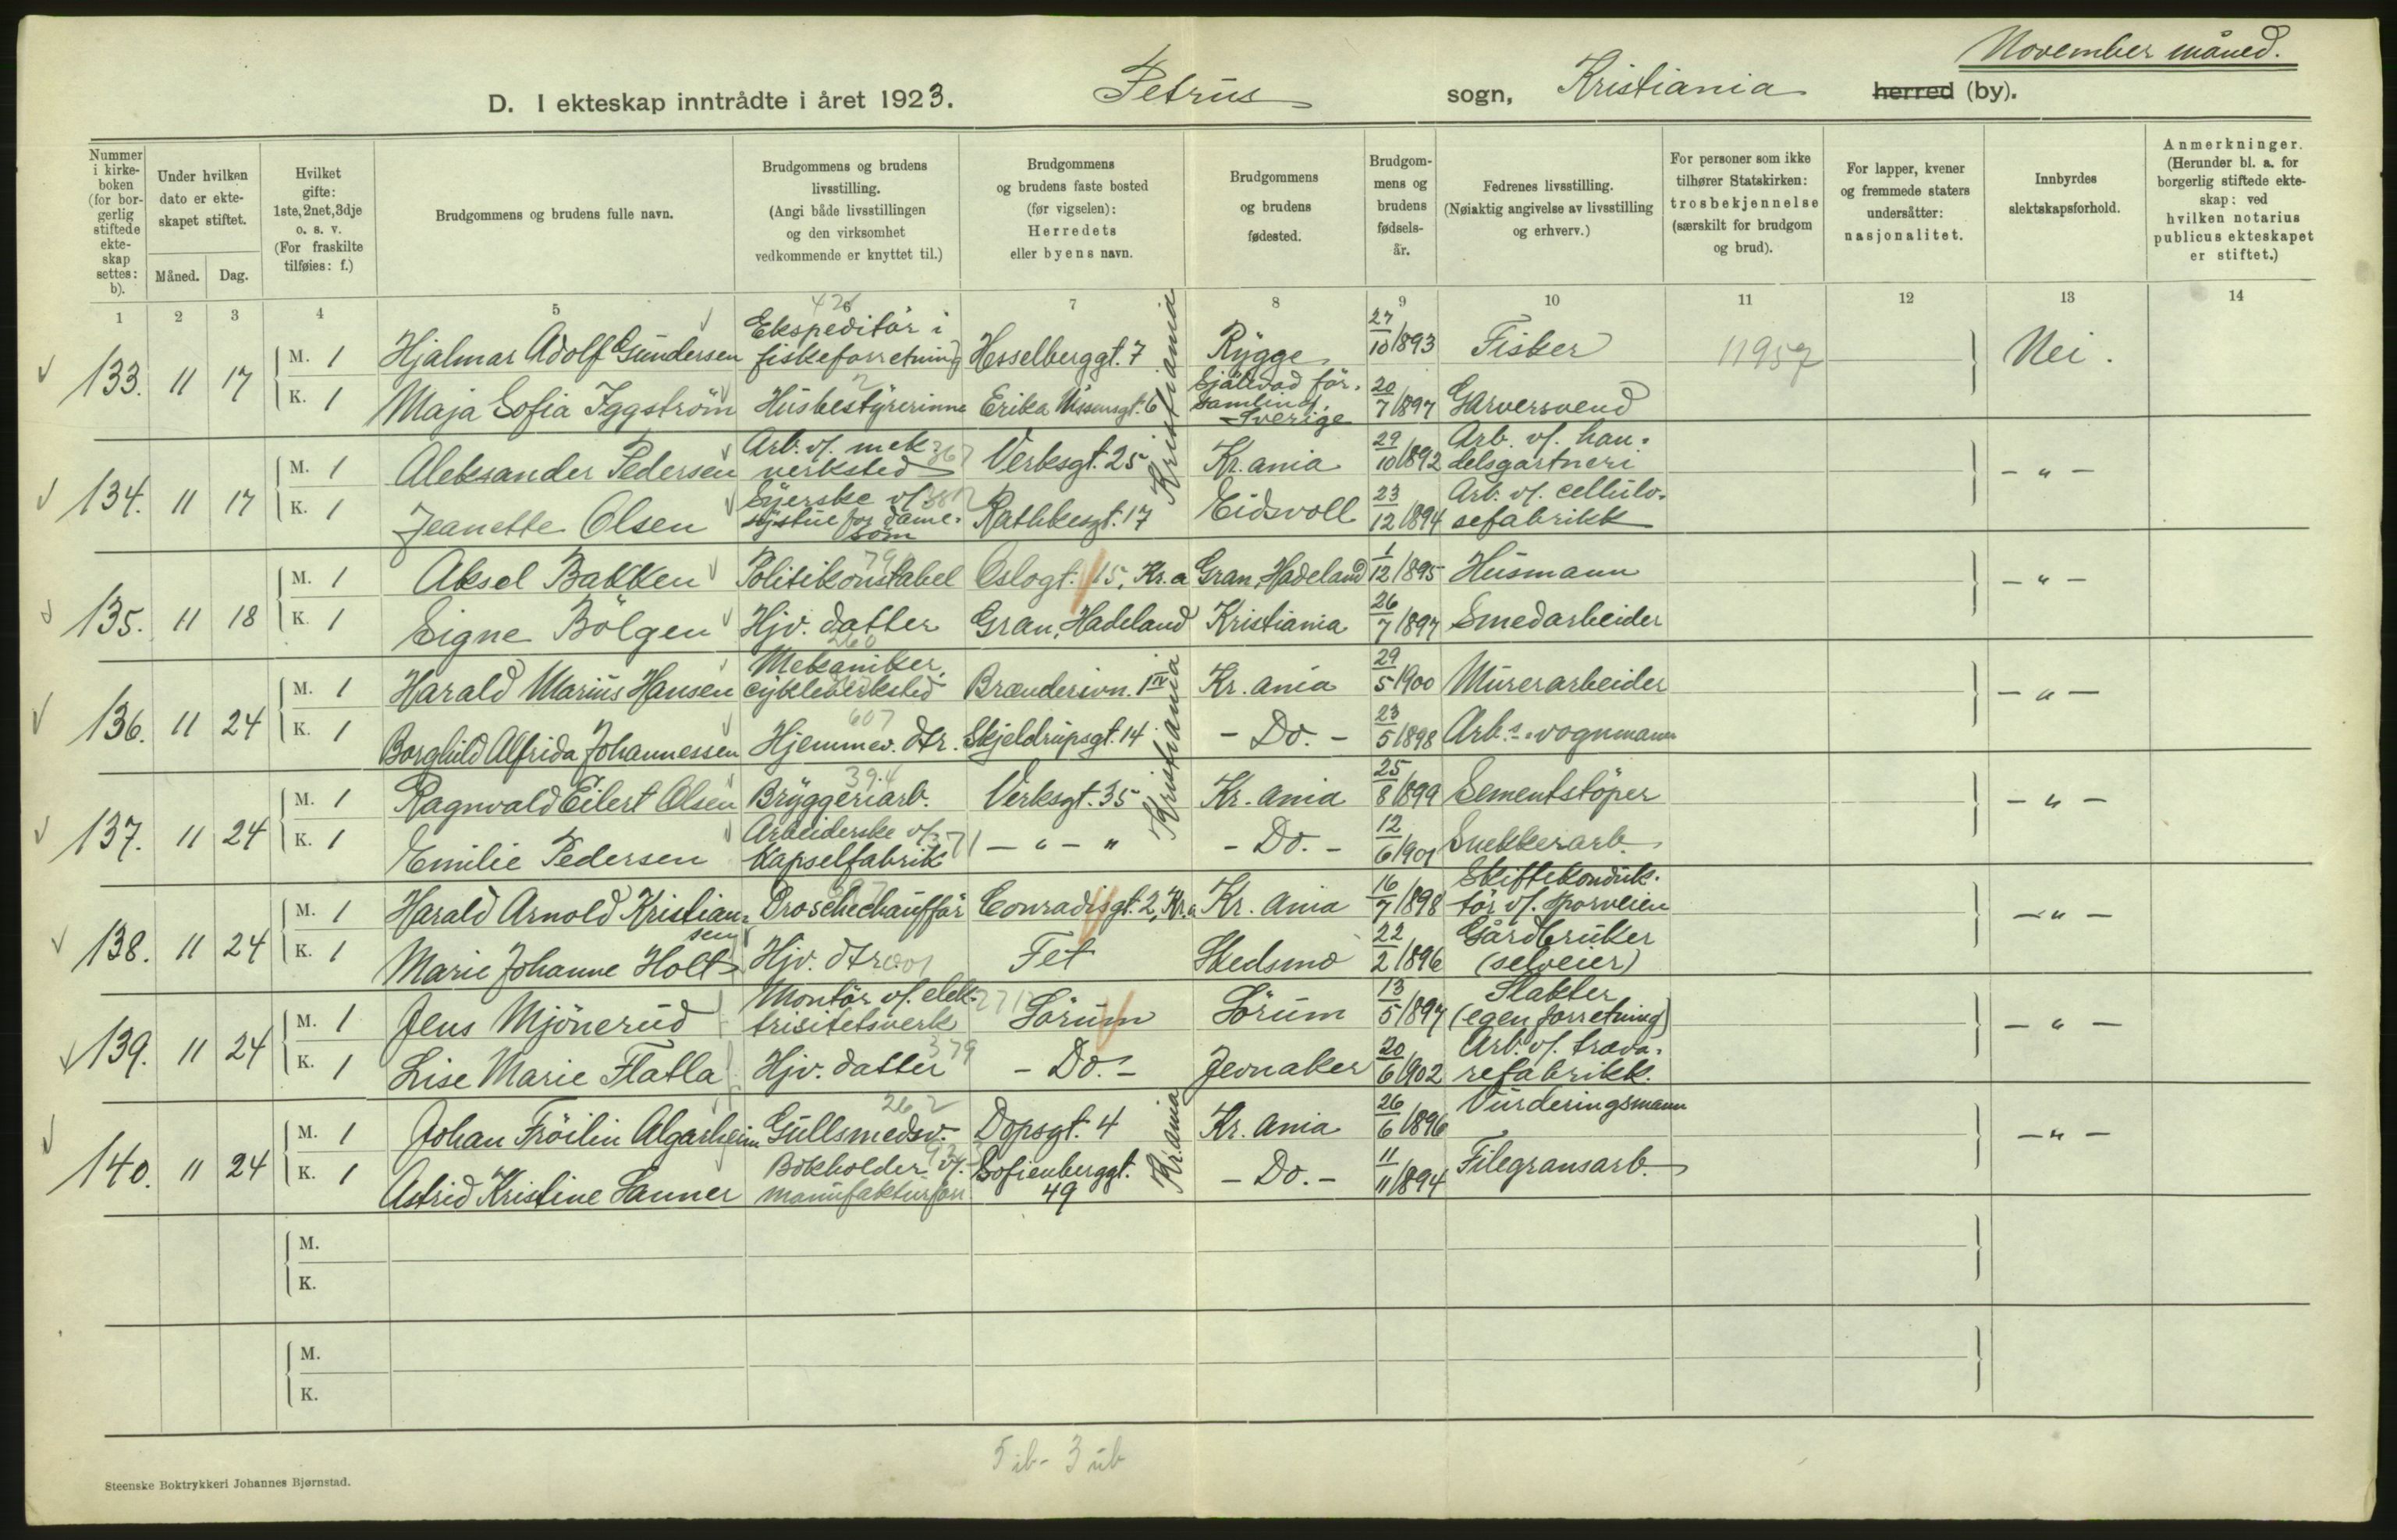 November måned.
D. I ekteskap inntrådte i året 1923. Petrus sogn, Kristiania herred (by).
Nummer i kirke-boken (for bor-gerlig stiftede ekte-skap settes: b).
Under hvilken dato er ekte-skapet stiftet.
Måned. Dag.
Hvilket gifte: 1ste, 2net, 3dje o. s. v. (For fraskilte tilføies: f.)
Brudgommens og brudens fulle navn.
Brudgommens og brudens livsstilling. (Angi både livsstillingen og den virksomhet vedkommende er knyttet til.)
Brudgommens og brudens faste bosted (før vigselen): Herredets eller byens navn.
Brudgommens og brudens fødested.
Brudgom-mens og brudens fødsels-år.
Fedrenes livsstilling. (Nøiaktig angivelse av livsstilling og erhverv.)
For personer som ikke tilhører Statskirken: trosbekjennelse (særskilt for brudgom og brud).
For lapper, kvener og fremmede staters undersåtter: nasjonalitet.
Innbyrdes slektskapsforhold.
Anmerkninger. (Herunder bl. a. for borgerlig stiftede ekte-skap: ved hvilken notarius publicus ekteskapet er stiftet.)
1 2 3 4 5 6 7 8 9 10 11 12 13 14
133. 11 17 M. 1 Hjalmar Adolf Gundersen Ekspeditör i fiskeforretning Hesselberggt. 7 Kristiania Rygge 27/10 1893 Fisker 11957 Nei.
K. 1 Maja Sofia Iggström Husbestyrerinne Erika Nissensgt. 6 för-samling, Sverige 20/7 1897 Garversvend
134. 11 17 M. 1 Aleksander Pedersen Arb. v/. mek verksted 367 Verksgt. 25 Kr.ania 29/10 1892 Arb. v/. han-delsgartneri - " -
K. 1 Jeanette Olsen Eierske v/. systue for dame-söm Rathkesgt. 17 Eidsvoll 23/12 1894 Arb. v/. cellulo-sefabrikk
135. 11 18 M. 1 Aksel Bakken Politikonstabel Oslogt. 15, Kr.a Gran, Hadeland 1/12 1895 Husmann - " -
K. 1 Signe Bölgen Hjv. datter Gran, Hadeland Kristiania 26/7 1897 Smedarbeider
136. 11 24 M. 1 Harald Marius Hansen 260 Mekaniker, cykleverksted Brænderivn. 1 IV Kristiania Kr. ania 29/5 1900 Murerarbeider - " -
K. 1 Borghild Alfrida Johannessen 607 Hjemmev. dtr. Skjeldrupsgt. 14 - Do. - 23/5 1898 Arb.s-vognmann
137. 11 24 M. 1 Ragnvald Eilert Olsen 394 Bryggeriarb. Verksgt. 35 Kr. ania 25/8 1899 Sementstöper - " -
K. 1 Emilie Pedersen Arbeiderske v/. Kapselfabrik - " - " - Do. - 12/6 1901 Snekkerarb.
138. 11 24 M. 1 Harald Arnold Kristian-sen Droschechaufför Conradisgt. 2, Kr.a Kr. ania 16/7 1898 Skiftekonduk-tör v/. sporveien - " -
K. 1 Marie Johanne Holt Hjv. dtr. Fet Skedsmo 22/2 1896 Gårdbruker (selveier)
139. 11 24 M. 1 Jens Mjönerud Montör v/. elek-trisitetsverk Sörum Sörum 13/5 1897 Slakter (egen forretning) - " -
K. 1 Lise Marie Flatla Hjv. datter 379 - Do. - Jevnaker 20/6 1902 Arb. v/. trava-refabrikk.
140. 11 24 M. 1 Johan Fröilin Algarheim 262 Gullsmedsv. Dopsgt. 4 Kr.ania Kr. ania 26/6 1896 Vurderingsmann - " -
K. 1 Astrid Kristine Sanner Bokholder v/. manufakturforr. Sofienberggt. 49 - Do. - 11/11 1894 Filegransarb.
M.
K.
M.
K.
5 ib - 3 ub
Steenske Boktrykkeri Johannes Bjørnstad.